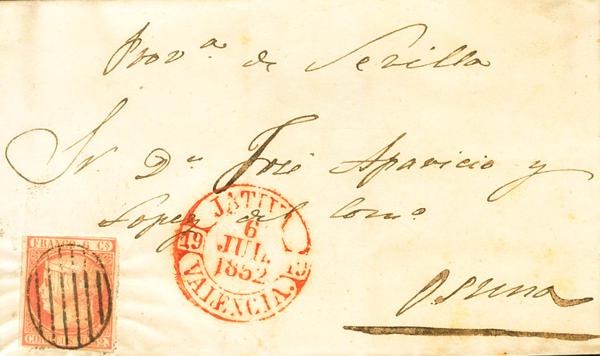 Prov.ª de Sevilla
Sr. Dn José Aparicio y
Lopez del Como
Osuna
JATIVA
19
6
JUL.
1852
VALENCIA.
FRANCO 6 CS